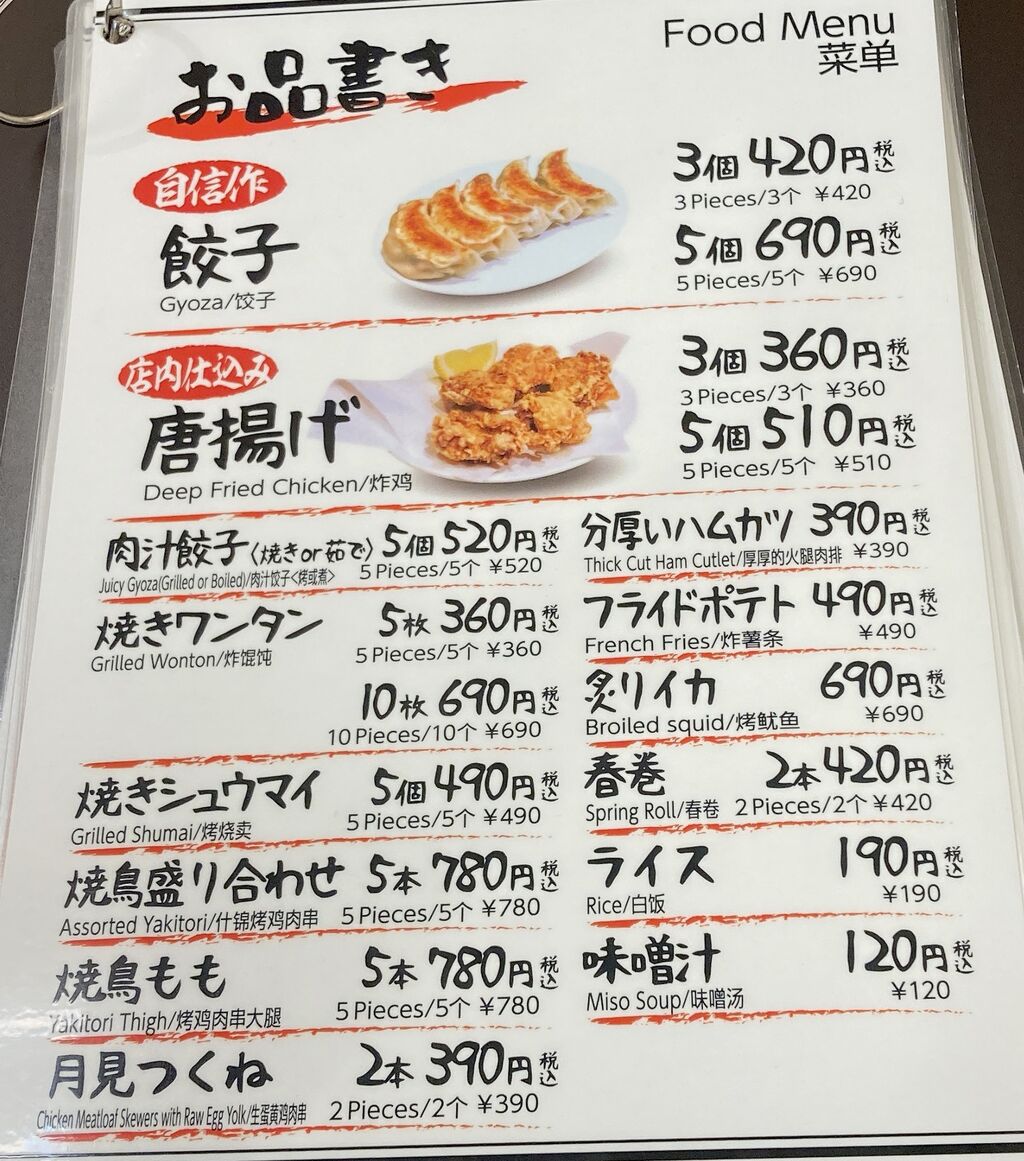 お品書き
Food Menu
菜单
自信作
餃子
Gyoza/饺子
3個 420円税込
3 Pieces/3个 ¥420
5個 690円税込
5 Pieces/5个 ¥690
店内仕込み
唐揚げ
Deep Fried Chicken/炸鸡
3個 360円税込
3 Pieces/3个 ¥360
5個 510円税込
5 Pieces/5个 ¥510
肉汁餃子〈焼きor茹で〉 5個 520円税込
Juicy Gyoza(Grilled or Boiled)/肉汁饺子<烤或煮> 5 Pieces/5个 ¥520
焼きワンタン 5枚 360円税込
Grilled Wonton/炸馄饨 5 Pieces/5个 ¥360
10枚 690円税込
10 Pieces/10个 ¥690
焼きシュウマイ 5個 490円税込
Grilled Shumai/烤烧卖 5 Pieces/5个 ¥490
焼鳥盛り合わせ 5本 780円税込
Assorted Yakitori/什锦烤鸡肉串 5 Pieces/5个 ¥780
焼鳥もも 5本 780円税込
Yakitori Thigh/烤鸡肉串大腿 5 Pieces/5个 ¥780
月見つくね 2本 390円税込
Chicken Meatloaf Skewers with Raw Egg Yolk/生蛋黄鸡肉串 2 Pieces/2个 ¥390
分厚いハムカツ 390円税込
Thick Cut Ham Cutlet/厚厚的火腿肉排 ¥390
フライドポテト 490円税込
French Fries/炸薯条 ¥490
炙りイカ 690円税込
Broiled squid/烤鱿鱼 ¥690
春巻 2本 420円税込
Spring Roll/春卷 2 Pieces/2个 ¥420
ライス 190円税込
Rice/白饭 ¥190
味噌汁 120円税込
Miso Soup/味噌汤 ¥120